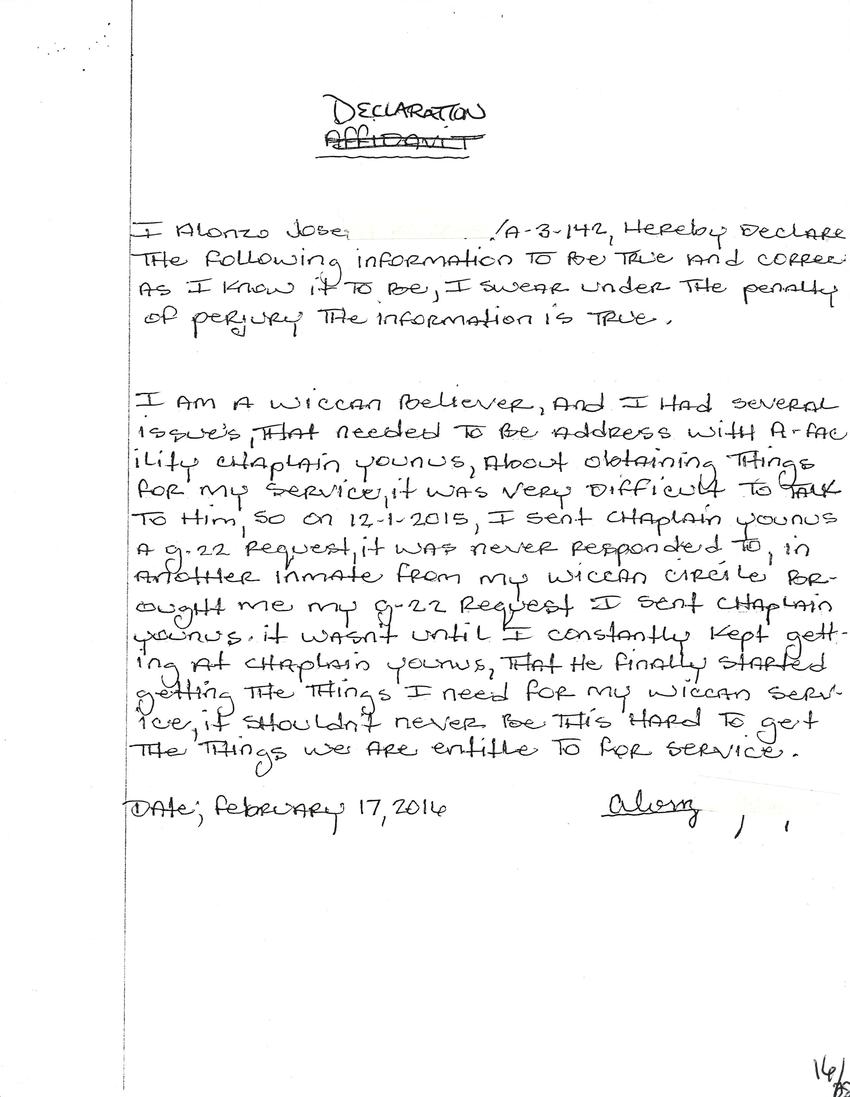 DECLARATION
AFFIDAVIT
I Alonzo Jose /A-3-142, Hereby Declare
THe following information To Be True and corre
As I know it To Be, I swear under THe penalty
of perjury THe information is True.
I AM A Wiccan Believer, And I Had several
issue's, THat needed To Be Address with A-fac
ility CHaplain younus, About obtaining THings
for my service, it was very Difficult To Talk
To Him, so on 12-1-2015, I sent CHaplain younus
A g-22 Request, it was never responded To, in
AnotHer inmate from my wiccan circile Br-
ought me my g-22 Request I sent CHaplain
younus. it wasn't until I constantly kept gett-
ing At CHaplain younus, THat He finally started
getting THe THings I need for my wiccan serv-
ice, it sHouldn't never Be THis Hard To get
THe THings we Are entitle To for service.
DAte; February 17, 2016 Alonz
16/